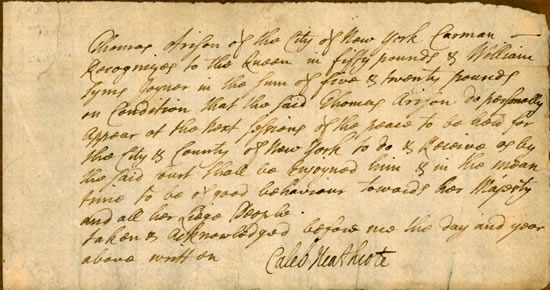 Thomas Arison of the City of New York Carman
Recognizes to the Queen in fifty pounds & William
Syms Joyner in the sum of five & twenty pounds
on Condition that the said Thomas Arison do personally
Appear at the next Sessions of the peace to be held for
the City & County of New York to do & Receive as by
the said Court shall be enjoyned him & in the mean
time to be of good behaviour towards her Majesty
and all her Liege People.
taken & Acknowledged before me the day and year
above written
Caleb Heathcote